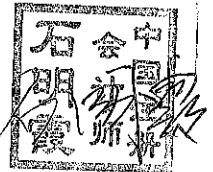 中国注册
会计师
石明霞